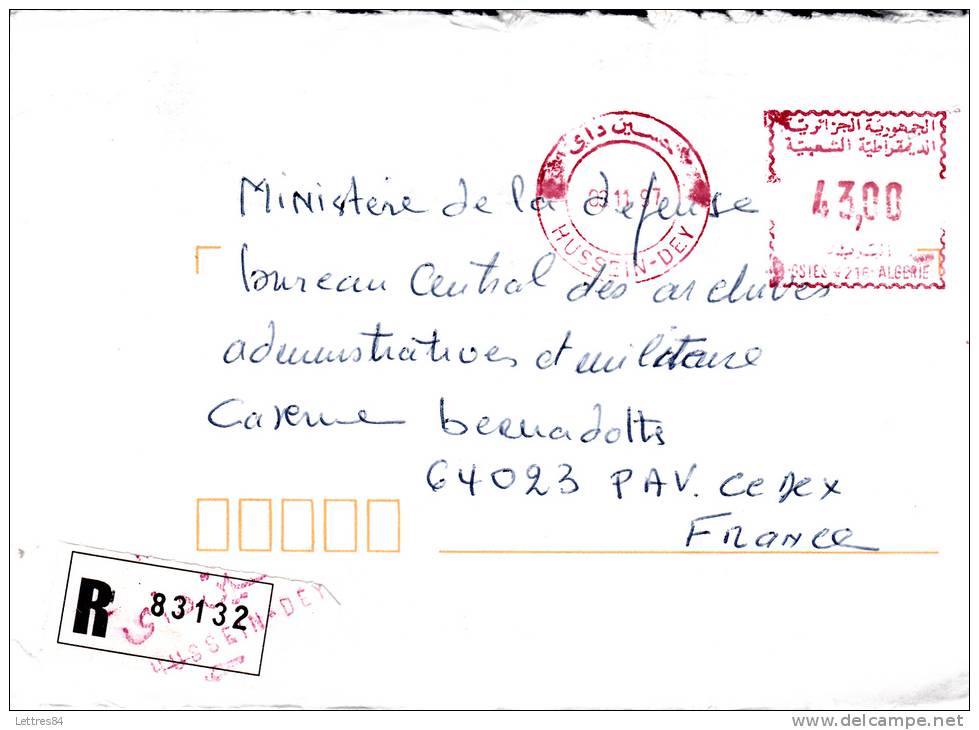 حسين داي
09.11.97
HUSSEIN-DEY
الجمهورية الجزائرية
الديمقراطية الشعبية
43,00
البريد
POSTES *216* ALGERIE
Ministère de la defense
bureau Central des archives
administratives et militaire
Caserne bernadotte
64023 PAV. CeDex
FRANCE
R 83132
HUSSEIN-DEY
Lettres84
www.delcampe.net